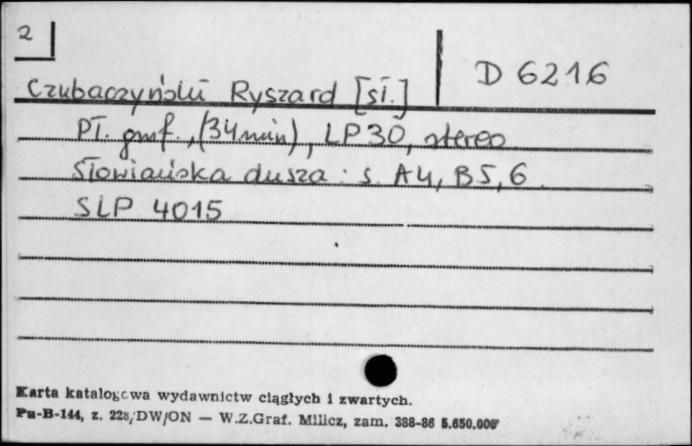 2
D 6216
Czubaczyński Ryszard [sł.]
Pł. gmf., (34 min), LP 30, stereo
Słowiańska dusza : s. A4, B5, 6.
SLP 4015
Karta katalogowa wydawnictw ciągłych i zwartych.
Pu-B-144, z. 228/DW/ON — W.Z.Graf. Milicz, zam. 388-86 5.650.000